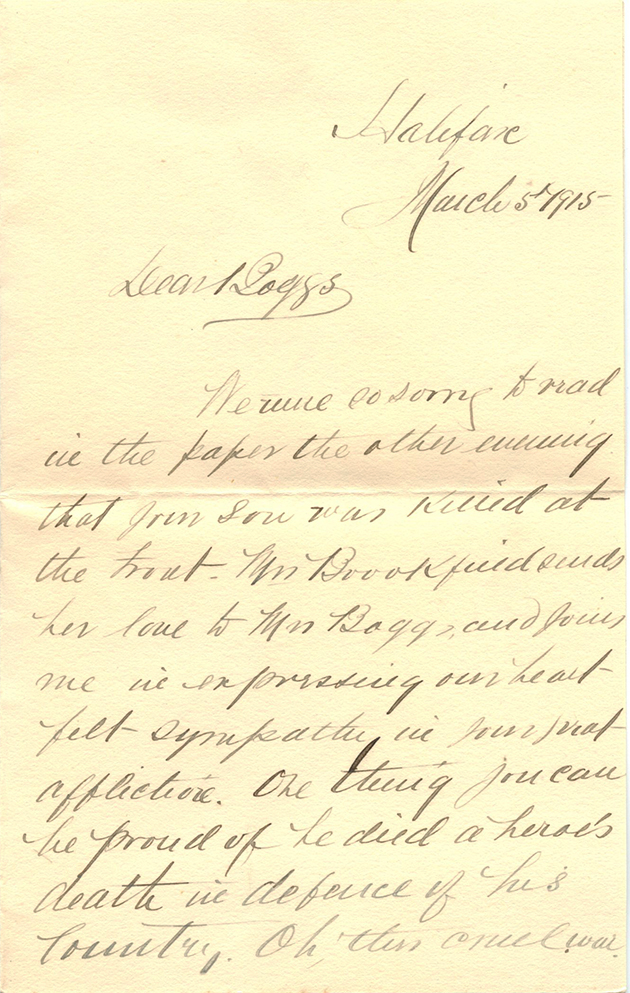 Halifax
March 5th 1915
Dear Boggs
We were so sorry to read
in the paper the other evening
that your son was killed at
the front. Mrs Brookfield sends
her love to Mrs Boggs, and joins
me in expressing our heart
felt sympathy in your great
affliction. One thing you can
be proud of he died a hero's
death in defence of his
Country. Oh, this cruel war.